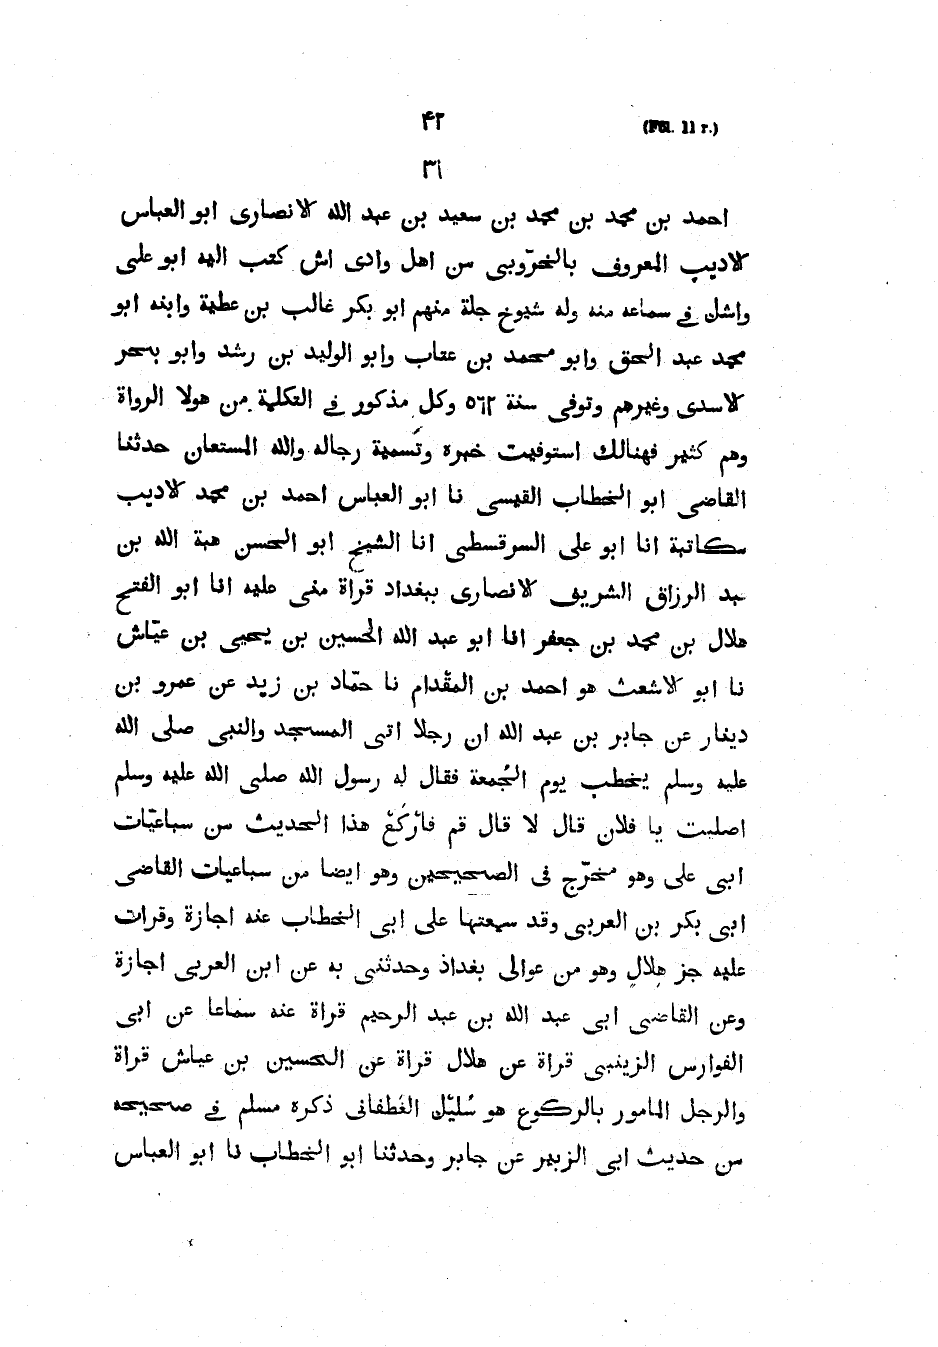 (Fol. 11 r.)
۴۲
۳۱
احمد بن محمد بن محمد بن سعيد بن عبد الله الانصارى ابو العباس
الاديب المعروف بالخرّوبى من اهل وادى اش كتب اليه ابو على
واشل فى سماعه منه وله شيوخ جلة منهم ابو بكر غالب بن عطية وابنه ابو
محمد عبد الحق وابو محمد بن عتاب وابو الوليد بن رشد وابو بحر
الاسدى وغيرهم وتوفى سنة ٥٦٢ وكل مذكور فى التكلية من هولا الرواة
وهم كثير فهنالك استوفيت خبره وتَسمية رجاله والله المستعان حدثنا
القاضى ابو الخطاب القيسى نا ابو العباس احمد بن محمد الاديب
مكاتبة انا ابو على السرقسطى انا الشيخ ابو الحسن هبة الله بن
عبد الرزاق الشريف الانصارى ببغداد قراة منى عليه انا ابو الفتح
هلال بن محمد بن جعفر انا ابو عبد الله الحسين بن يحيى بن عيّاش
نا ابو الاشعث هو احمد بن المقْدام نا حمّاد بن زيد عن عمرو بن
دينار عن جابر بن عبد الله ان رجلا اتى المسجد والنبى صلى الله
عليه وسلم يخطب يوم الجُمعة فقال له رسول الله صلى الله عليه وسلم
اصليت يا فلان قال لا قال قم فارْكَعْ هذا الحديث من سباعيّات
ابى على وهو مخرّج فى الصحيحين وهو ايضا من سباعيات القاضى
ابى بكر بن العربى وقد سمعتها على ابى الخطاب عنه اجازة وقرات
عليه جز هلالٍ وهو من عوالى بغداذ وحدثنى به عن ابن العربى اجازة
وعن القاضى ابى عبد الله بن عبد الرحيم قراة عنه سماعا عن ابى
الفوارس الزينبى قراة عن هلال قراة عن الحسين بن عياش قراة
والرجل المامور بالركوع هو سُليْك الغَطفانى ذكره مسلم فى صحيحه
من حديث ابى الزبير عن جابر وحدثنا ابو الخطاب نا ابو العباس